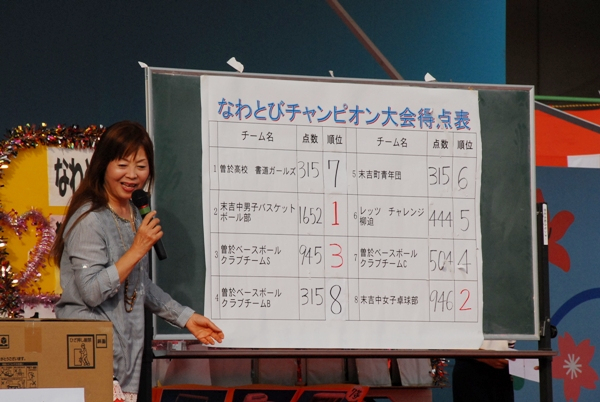 なわとびチャンピオン大会得点表
チーム名 点数 順位 チーム名 点数 順位
1 曽於高校 書道ガールズ 315 7
5 末吉町青年団 315 6
2 末吉中男子バスケット
ボール部 1652 1
6 レッツ チャレンジ
柳迫 444 5
3 曽於ベースボール
クラブチームS 945 3
7 曽於ベースボール
クラブチームC 504 4
4 曽於ベースボール
クラブチームB 315 8
8 末吉中女子卓球部 946 2
なわと